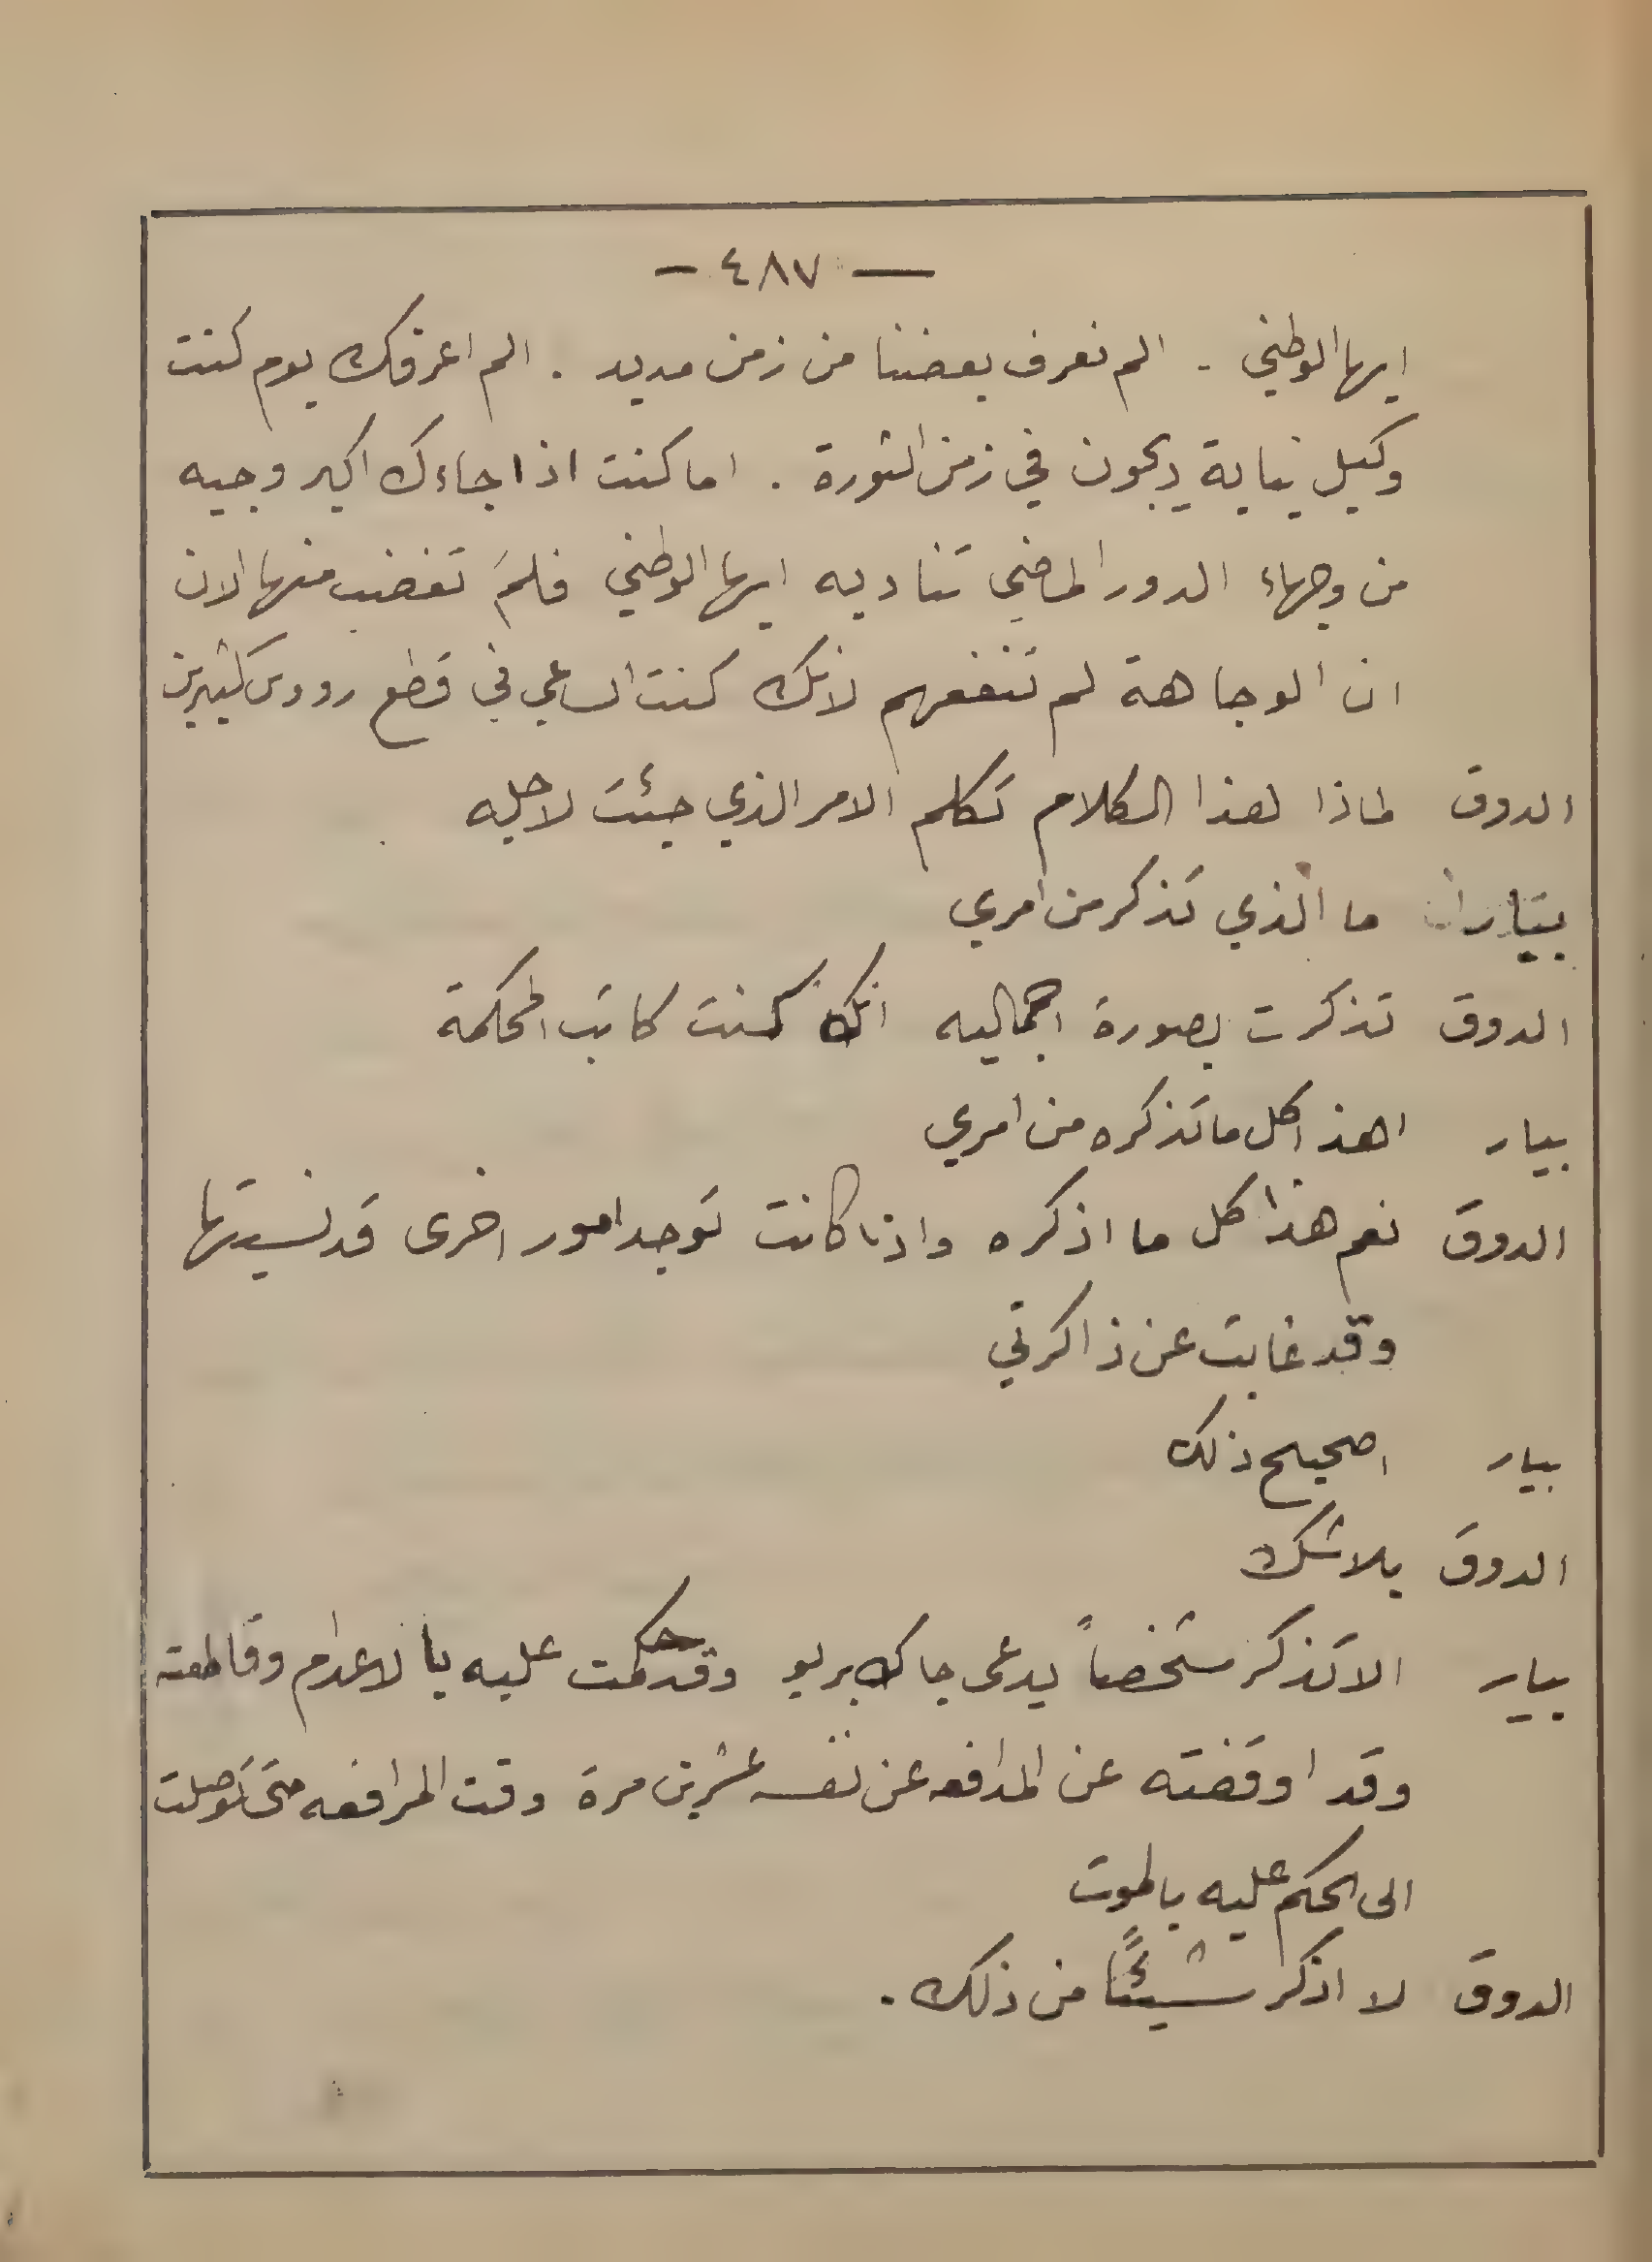 — ٤٨٧ —
ايها الوطني . الم نعرف بعضنا من زمن مديد . الم اعرفك يوم كنت
وكيل نيابة ديجون في زمن الثورة . اما كنت اذا جاءك اكبر وجيه
من وجهاء الدور الماضي تناديه ايها الوطني فلمَ تغضب منها الان
ان الوجاهة لم تنفعهم لانك كنت الساعي في قطع رووس كثيرين
الدوق لماذا لهذا الكلام تكلم الامر الذي جئت لاجله
بيار ما الذي تذكر من امري
الدوق تذكرت بصورة اجماليه انك كنت كاتب المحكمة
بيار اهذا كل ما تذكره من امري
الدوق نعم هذا كل ما اذكره واذا كانت توجد امور اخرى قد نسيتها
وقد غابت عن ذاكرتي
بيار اصحيح ذلك
الدوق بلا شك
بيار الا تذكر شخصاً يدعى جاك بريو وقد حكمت عليه بالاعدام وقاطعته
وقد اوقفته عن المدافعه عن نفسه عشرين مرة وقت المرافعه حتى توصلت
الى الحكم عليه بالموت
الدوق لا اذكر شيئًا من ذلك .